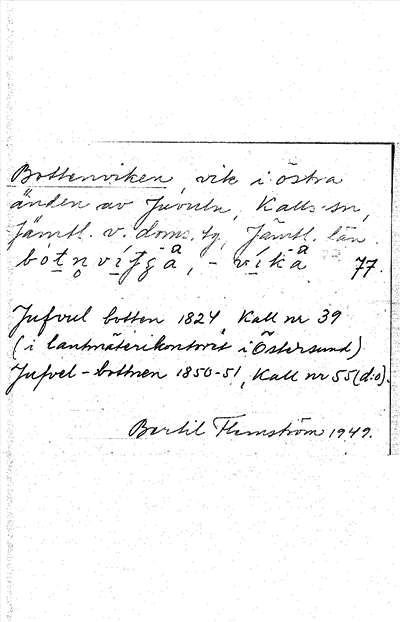 Bottenviken, vik i östra
änden av Juveln, Kalls sn,
Jämtl. v. doms. tg, Jämtl. län.
77.
Jufvul botten 1824, Kall nr 39
(i lantmäterikontoret i Östersund)
Jufvel-bottnen 1850-51, Kall nr 55 (d:o).
Bertil Flemström 1949.